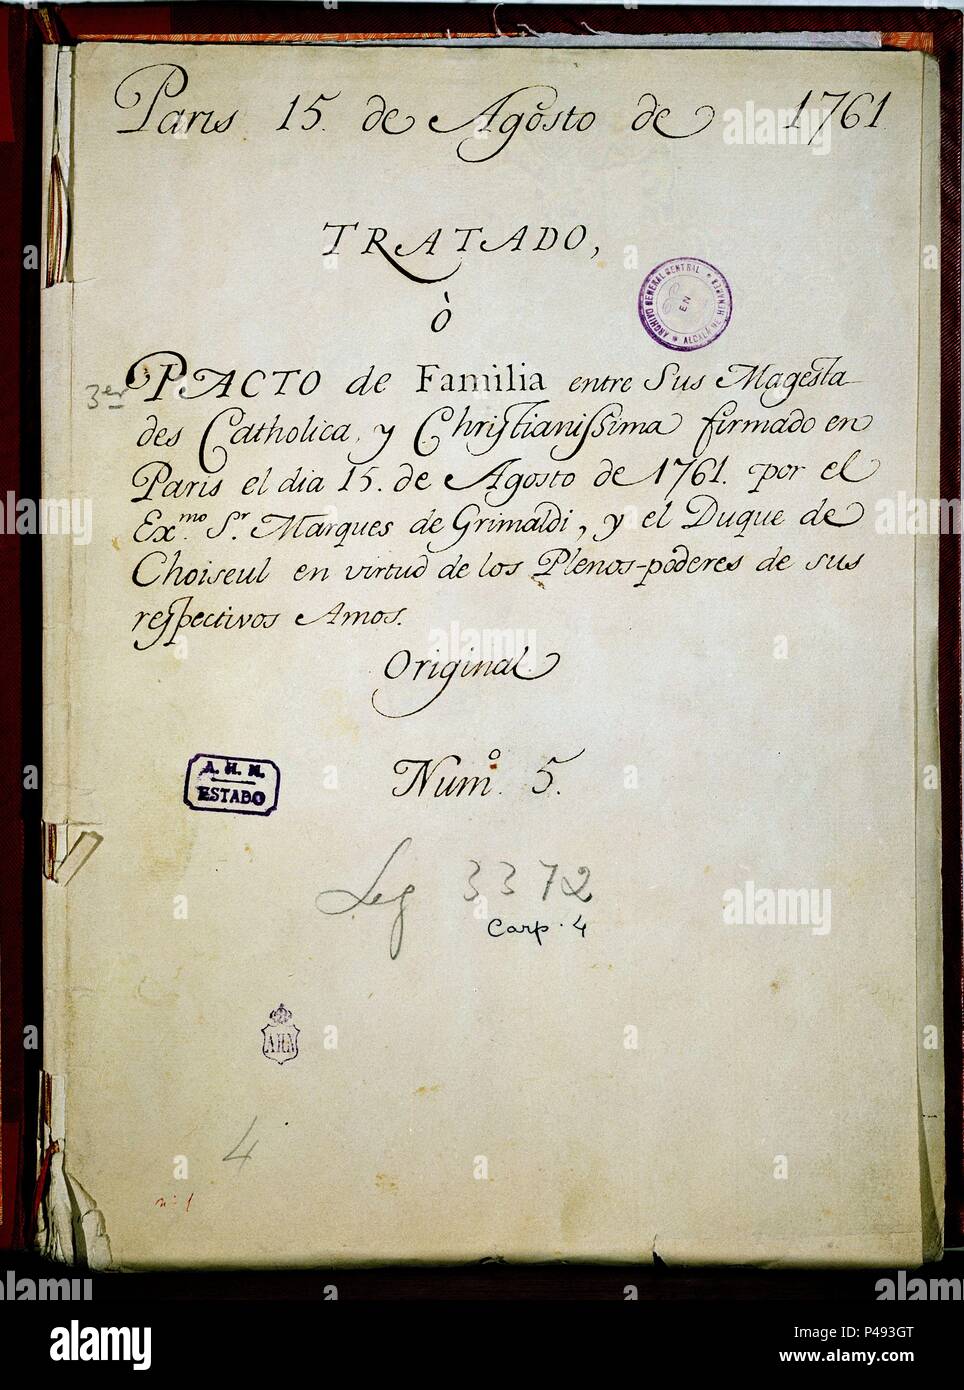 Paris 15. de Agosto de 1761
TRATADO,
ò
3er PACTO de Familia entre Sus Magesta
des Catholica, y Christianissima firmado en
Paris el dia 15. de Agosto de 1761. por el
Ex.mo S.r Marques de Grimaldi, y el Duque de
Choiseul en virtud de los Plenos-poderes de sus
respectivos Amos.
Original
Num.o 5.
ARCHIVO GENERAL CENTRAL * EN * ALCALÁ DE HENARES
A. H. N.
ESTADO
Leg 3372
Carp. 4
AHN
4
nº 1
alamy
Image ID: P493GT
www.alamy.com